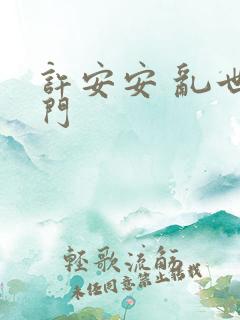 許安安 亂世
門
輕歌流觴
未任同意禁止轉載